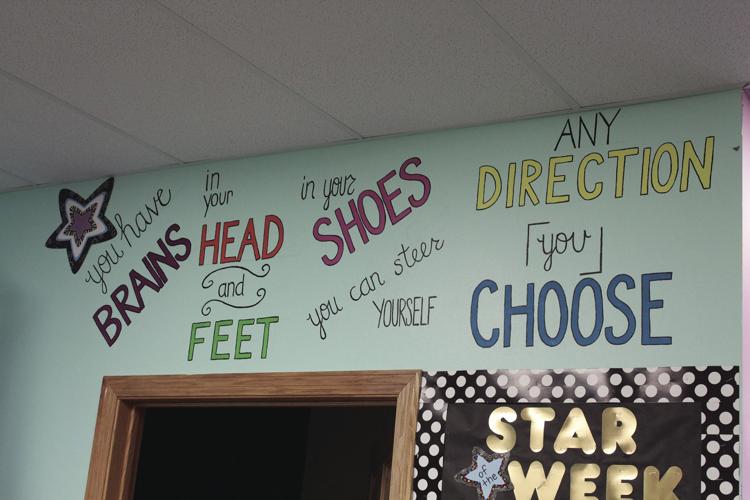 you have
BRAINS
in
your
HEAD
and
FEET
in your
SHOES
you can steer
YOURSELF
ANY
DIRECTION
you
CHOOSE
STAR
of the
WEEK